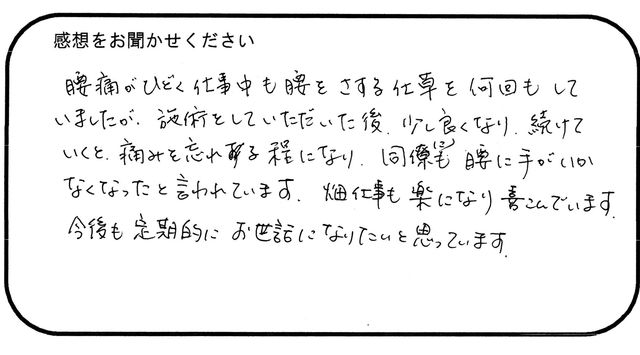 感想をお聞かせください
腰痛がひどく仕事中も腰をさする仕草を何回もして
いましたが、施術をしていただいた後、少し良くなり、続けて
いくと、痛みを忘れる程になり、同僚にも腰に手がいか
なくなったと言われています。畑仕事も楽になり喜こんでいます。
今後も定期的にお世話になりたいと思っています。